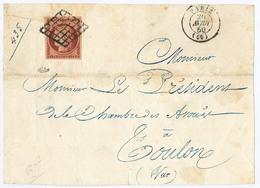 PARIS
50
(60)
Monsieur
Monsieur Le Président
de la Chambre des Avoués
à
Toulon
(Var)